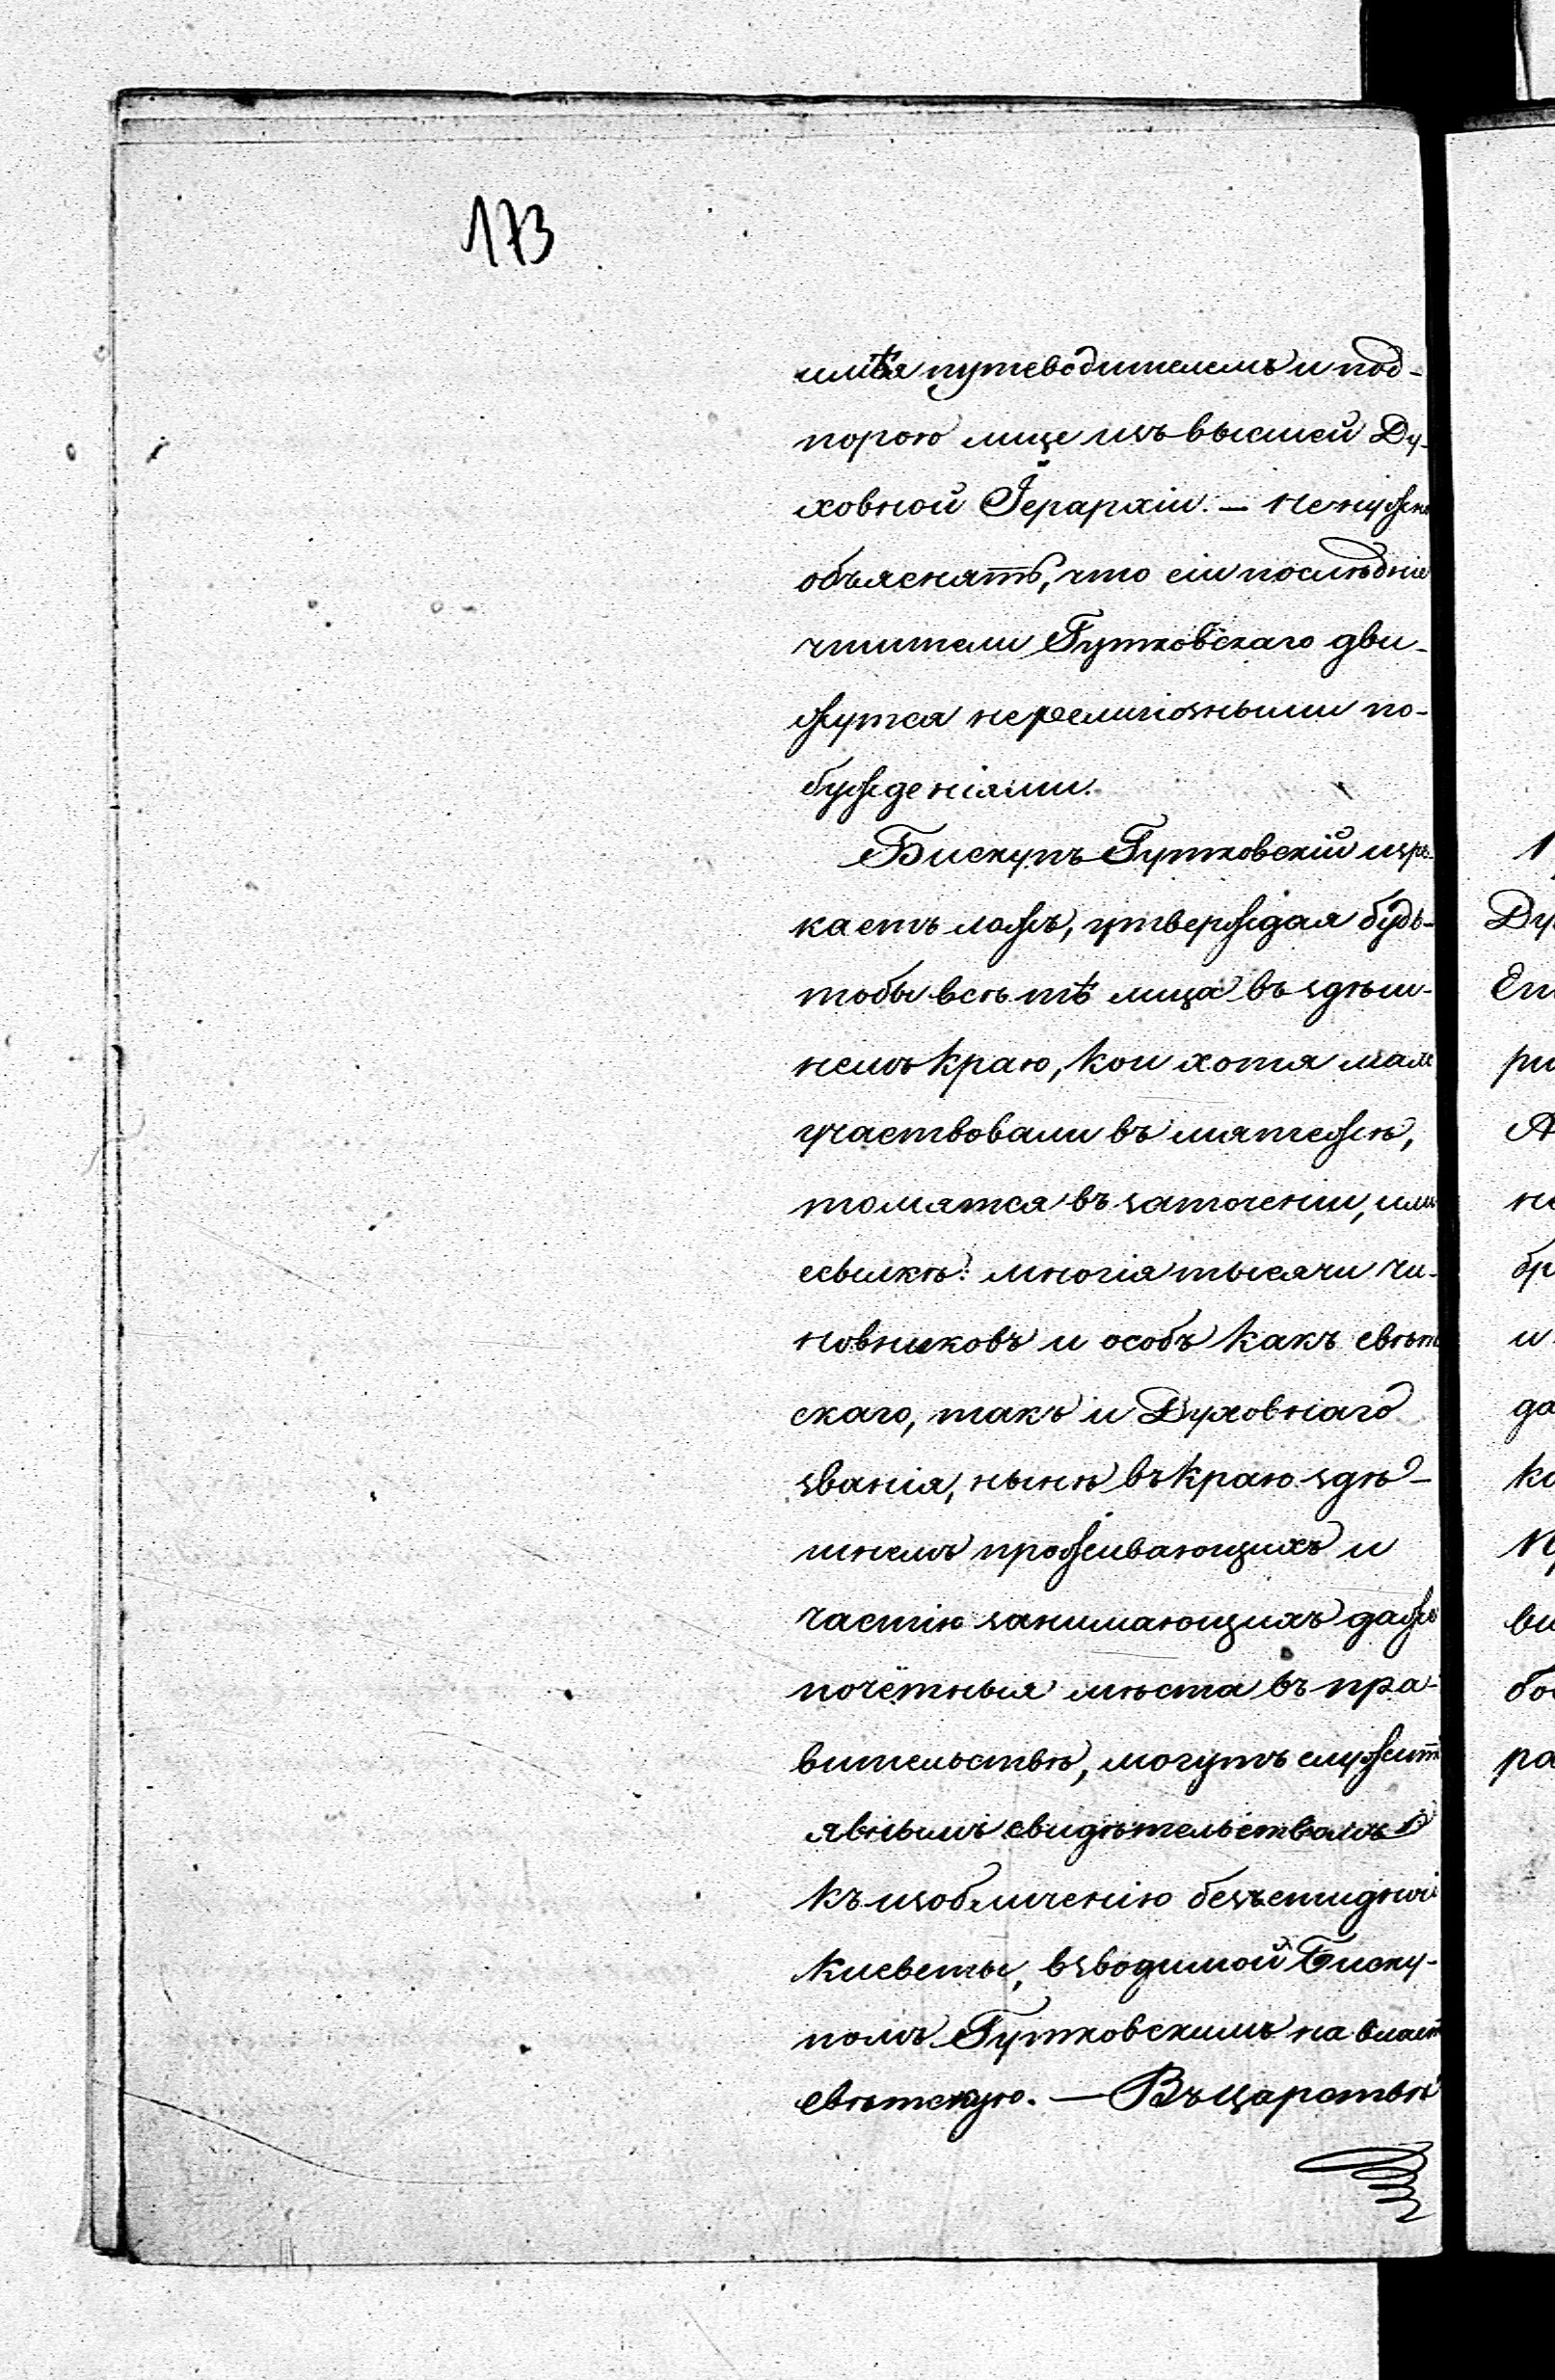 173
имѣя путеводителемъ и под-
порою лице изъ высшей Ду-
ховной Іерархіи. — Не нужно
объяснять, что сіи послѣдніе
чтители Гутковскаго дви-
жутся нерелигіозными по-
бужденіями.
Бискупъ Гутковскій изре-
каетъ ложь, утверждая будь-
тобы всѣ тѣ лица въ здѣш-
немъ краю, кои хотя мало
участвовали въ мятежѣ,
томятся въ заточеніи, или
ссылкѣ: многія тысячи чи-
новниковъ и особъ какъ свѣт
скаго, такъ и Духовнаго
званія, нынѣ въ краю здѣ-
шнемъ проживающихъ и
частію занимающихъ даже
почётныя мѣста въ пра-
вительствѣ, могутъ служить
явнымъ свидѣтельствомъ
къ изобличенію безстидной
клеветы, взводимой Биску-
помъ Гутковскимъ на власть
свѣтскую. — Въ Царствѣ
1
Ду
Еп
ри
А
на
бр
и
да
ко
Кр
ви
бо
ра